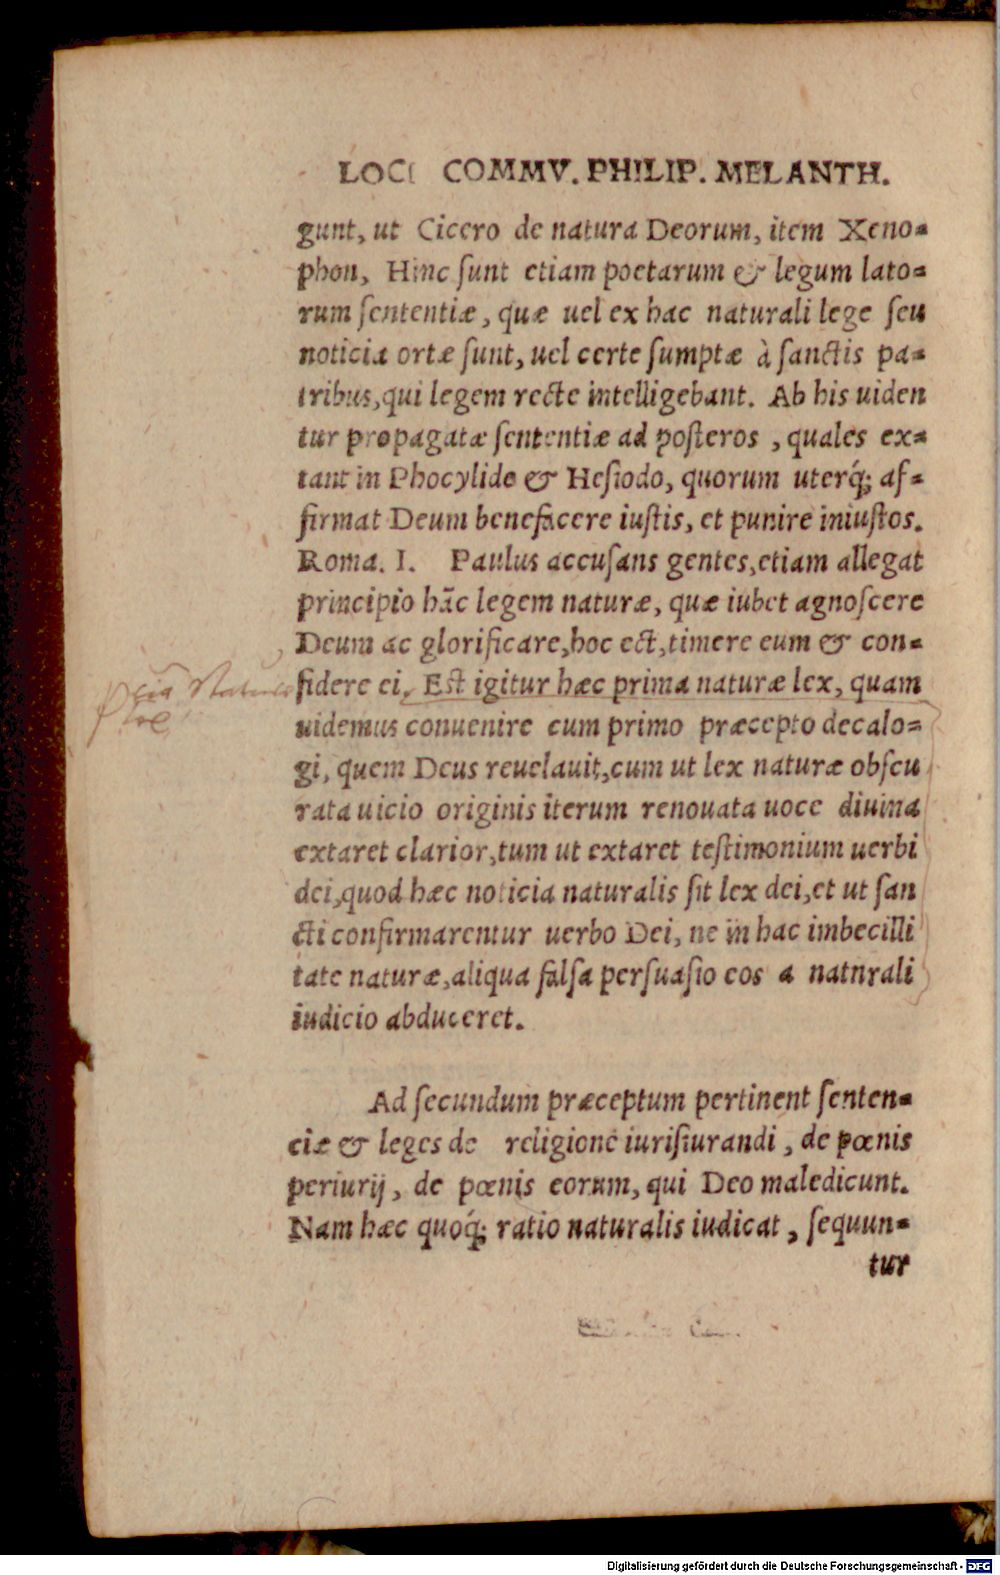 LOCI COMMV. PHILIP. MELANTH.
gunt, ut Cicero de natura Deorum, item Xeno-
phon, Hinc sunt etiam poetarum & legum lato-
rum sententiæ, quæ uel ex hac naturali lege seu
noticia ortæ sunt, uel certe sumptæ à sanctis pa-
tribus, qui legem recte intelligebant. Ab his uiden
tur propagatæ sententiæ ad posteros, quales ex-
tant in Phocylide & Hesiodo, quorum uterq́; af-
firmat Deum benefacere iustis, et punire iniustos.
Roma. I. Paulus accusans gentes, etiam allegat
principio hãc legem naturæ, quæ iubet agnoscere
Deum ac glorificare, hoc ect, timere eum & con-
fidere ei. Est igitur hæc prima naturæ lex, quam
uidemus conuenire cum primo præcepto decalo-
gi, quem Deus reuelauit, cum ut lex naturæ obscu
rata uicio originis iterum renouata uoce diuina
extaret clarior, tum ut extaret testimonium uerbi
dei, quod hæc noticia naturalis sit lex dei, et ut san
cti confirmarentur uerbo Dei, ne in hac imbecilli
tate naturæ, aliqua falsa persuasio eos a natnrali
iudicio abduceret.
Ad secundum præceptum pertinent senten-
ciæ & leges de religione iurisiurandi, de pœnis
periurij, de pœnis eorum, qui Deo maledicunt.
Nam hæc quoq́; ratio naturalis iudicat, sequun-
tur
Digitalisierung gefördert durch die Deutsche Forschungsgemeinschaft - DFG